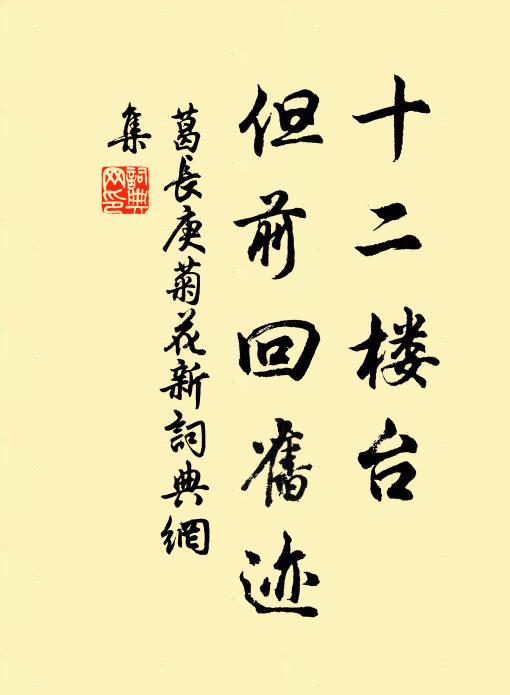 十二楼台
但前回舊迹
葛長庚菊花新詞典網
集
詞典
网印